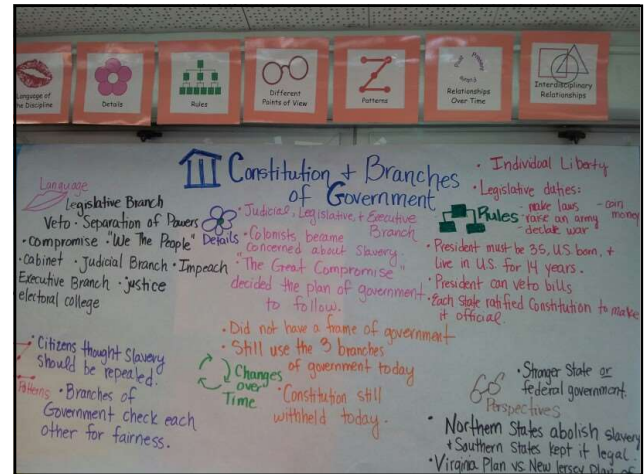 Language of
the Discipline
Details
Rules
Different
Points of View
Patterns
Relationships
Over Time
Interdisciplinary
Relationships
Constitution + Branches
of Government
Language
Legislative Branch
Veto · Separation of Powers
· compromise · "We The People"
· cabinet · Judicial Branch · Impeach
Executive Branch · justice
electoral college
Details
· Judicial, Legislative, + Executive
Branch
· Colonists became
concerned about slavery.
· "The Great Compromise"
decided the plan of government
to follow.
· Individual Liberty
· Legislative duties:
Rules
- make laws
- raise an army
- declare war
- coin
money
· President must be 35, U.S. born, +
live in U.S. for 14 years.
· President can veto bills
· Each state ratified Constitution to make
it official.
Patterns
· Citizens thought Slavery
should be repealed.
· Branches of
Government check each
other for fairness.
Changes
over
Time
· Did not have a frame of government
· Still use the 3 branches
of government today
· Constitution still
withheld today.
Perspectives
· Stronger State or
federal government.
· Northern States abolish slavery
+ Southern States kept it legal.
· Virginia Plan vs. New Jersey Plan